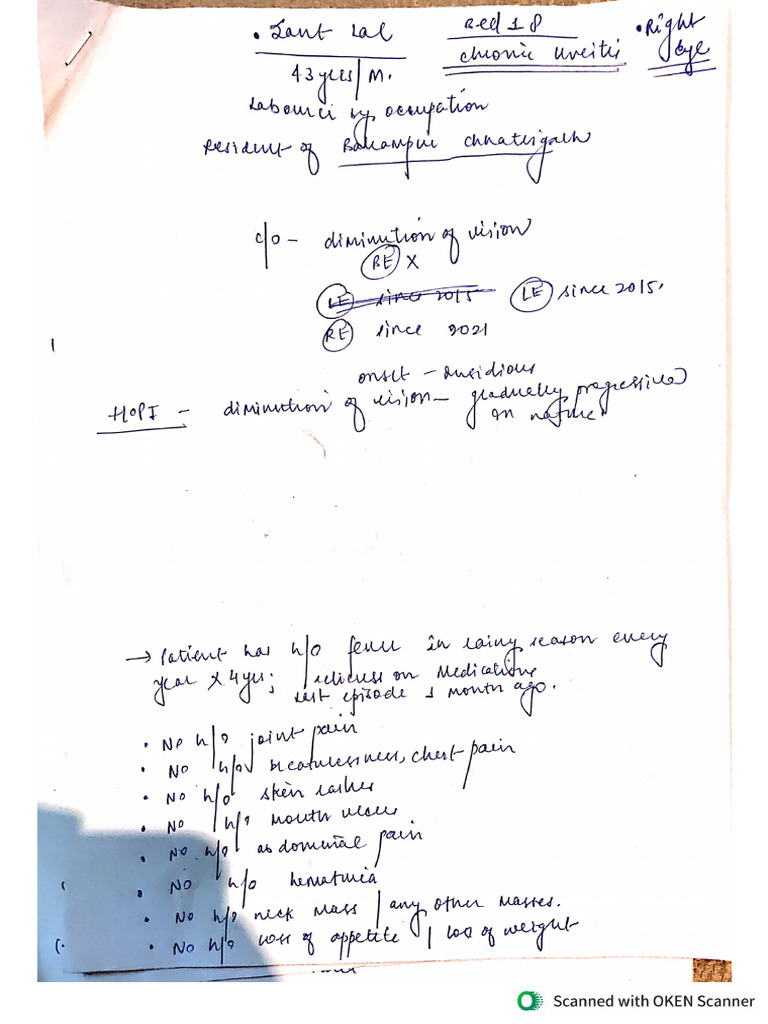 • Sant Lal
Bed 18
• Right Eye
43 yrs | M.
chronic Uveitis
Labourer by occupation
Resident of Balrampur Chhatisgarh
c/o - diminution of vision
RE X
LE since 2015 LE since 2015.
RE since 2021
onset - insidious
HOPI - diminution of vision - gradually progressive
in nature
→ Patient has h/o fever in rainy season every
year x 4 yrs; relieves on Medications
last episode 1 month ago.
• No h/o joint pain
• No h/o breathlessness, chest pain
• No h/o skin rashes
• No h/o mouth ulcers
• No h/o abdominal pain
• No h/o hematuria
• No h/o neck mass / any other masses.
• No h/o loss of appetite / loss of weight
Scanned with OKEN Scanner